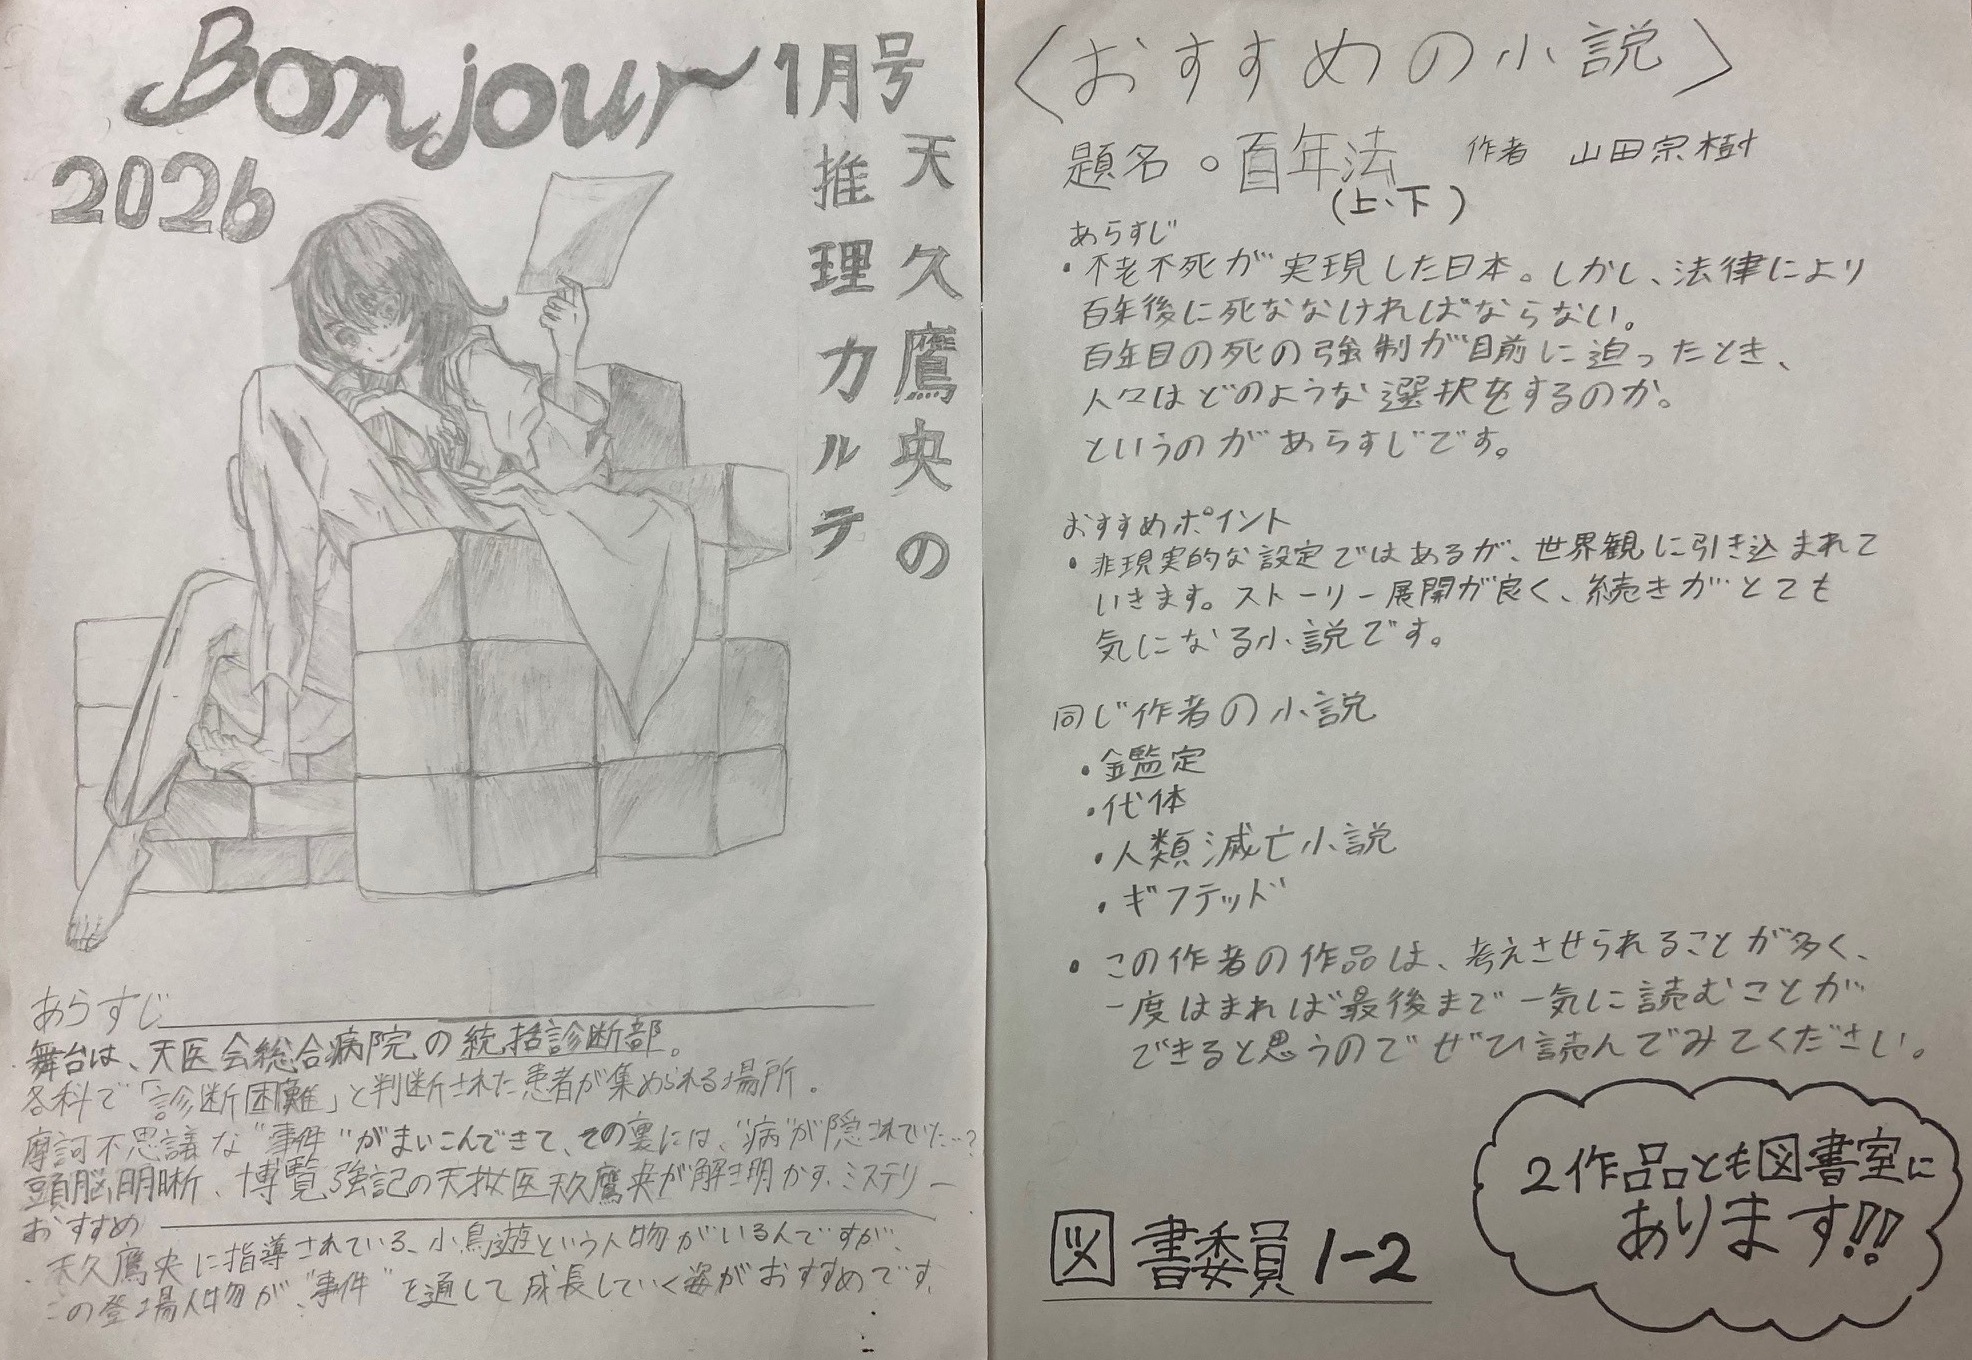 Bonjour 1月号
2026
天久鷹央の
推理カルテ
あらすじ
舞台は、天医会総合病院の統括診断部。
各科で「診断困難」と判断された患者が集められる場所。
摩訶不思議な"事件"がまいこんできて、その裏には、"病"が隠されていた…?
頭脳明晰、博覧強記の天才女医天久鷹央が解き明かす、ミステリー
おすすめ
・天久鷹央に指導されている、小鳥遊という人物がいるんですが、
この登場人物が、"事件"を通して成長していく姿がおすすめです。
〈おすすめの小説〉
題名。百年法 作者 山田宗樹
(上、下)
あらすじ
・不老不死が実現した日本。しかし、法律により
百年後に死ななければならない。
百年目の死の強制が目前に迫ったとき、
人々はどのような選択をするのか。
というのがあらすじです。
おすすめポイント
・非現実的な設定ではあるが、世界観に引き込まれて
いきます。ストーリー展開が良く、続きがとても
気になる小説です。
同じ作者の小説
・鑑定
・代体
・人類滅亡小説
・ギフテッド
・この作者の作品は、考えさせられることが多く、
一度はまれば最後まで一気に読むことが
できると思うのでぜひ読んでみてください。
2作品とも図書室に
あります!!
図書委員1-2